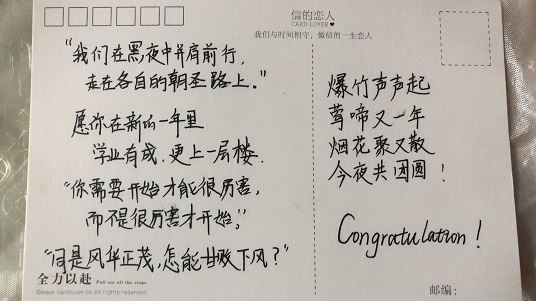 信的恋人
CARD LOVER
我们与时间相守，做信的一生恋人
“我们在黑夜中并肩前行，
走在各自的朝圣路上。”
愿你在新的一年里
学业有成，更上一层楼．
“你需要开始才能很厉害，
而不是很厉害才开始。”
“同是风华正茂，怎能甘败下风？”
爆竹声声起
莺啼又一年
烟花聚又散
今夜共团圆！
Congratulation！
全力以赴 Pull out all the stops.
©www.cardlover.cn All rights reserved
邮编：